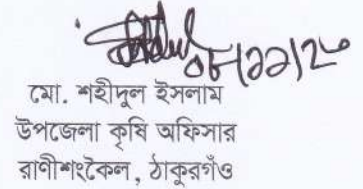 ০৮/১১/২০
মো. শহীদুল ইসলাম
উপজেলা কৃষি অফিসার
রাণীশংকৈল, ঠাকুরগাঁও